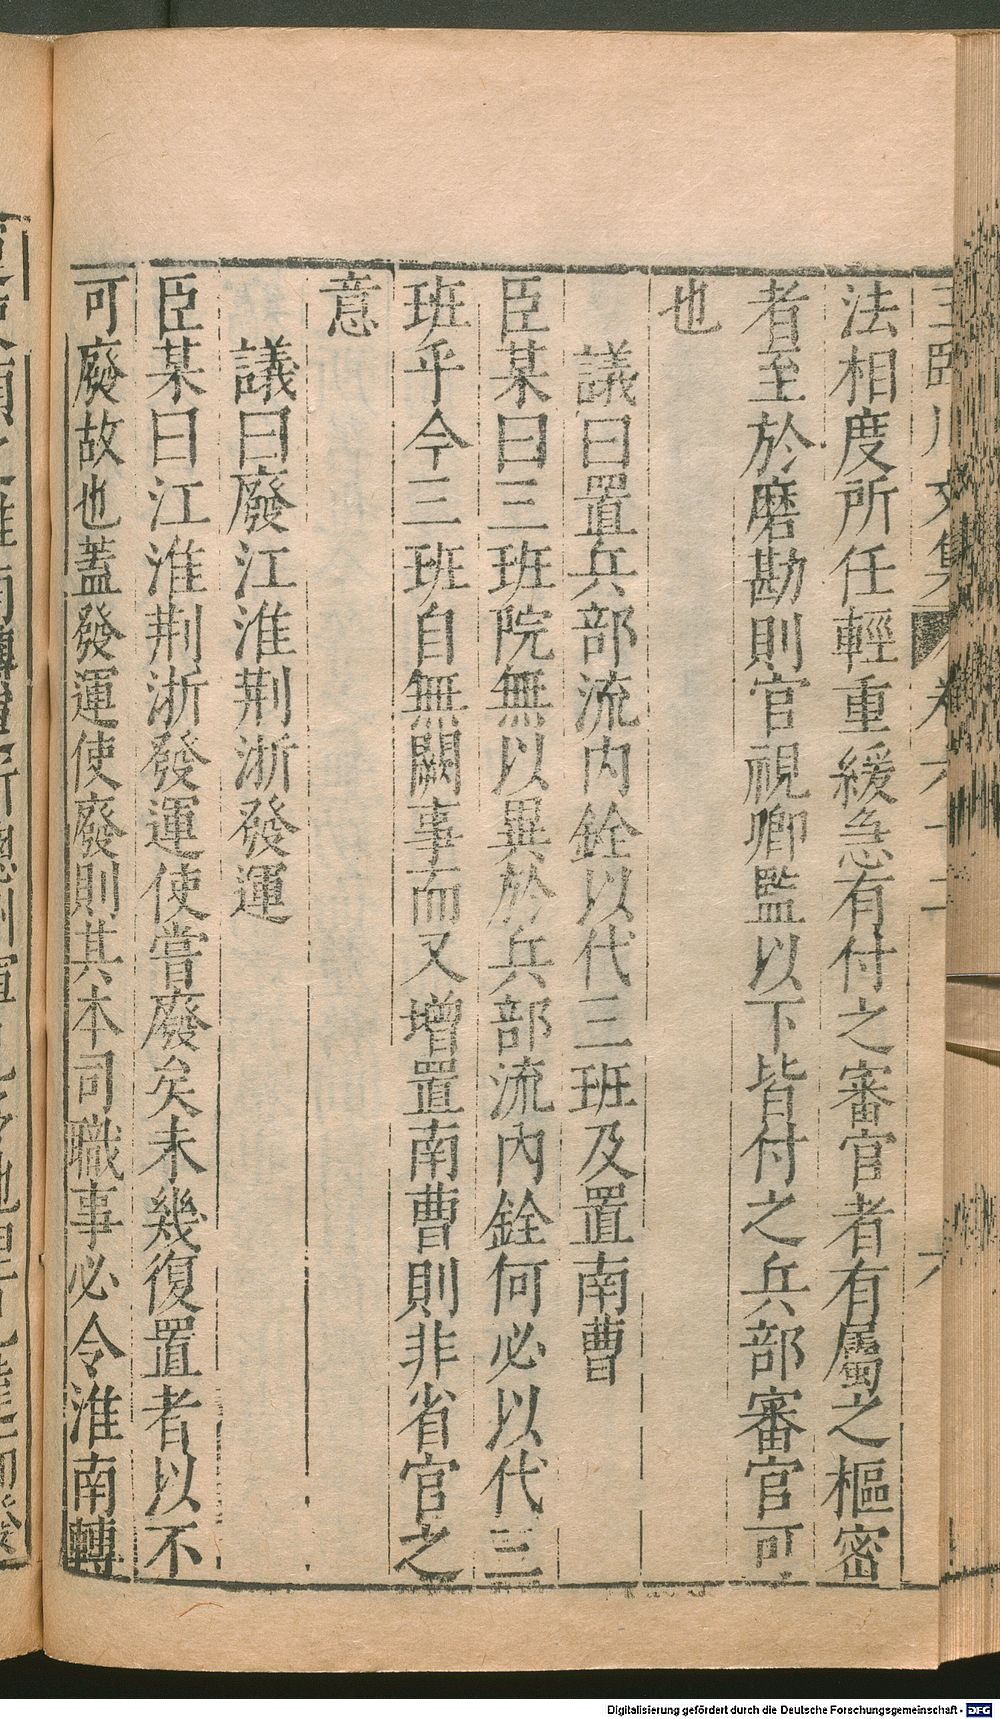 王臨川文集 卷六十二 六
法相度所任輕重緩急有付之審官者有屬之樞密
者至於磨勘則官視卿監以下皆付之兵部審官可
也
議曰置兵部流内銓以代三班及置南曹
臣某曰三班院無以異於兵部流內銓何必以代三
班乎今三班自無闕事而又增置南曹則非省官之
意
議曰廢江淮荆浙發運
臣某曰江淮荆浙發運使嘗廢矣未幾復置者以不
可廢故也蓋發運使廢則其本司職事必令淮南轉
Digitalisierung gefördert durch die Deutsche Forschungsgemeinschaft - DFG